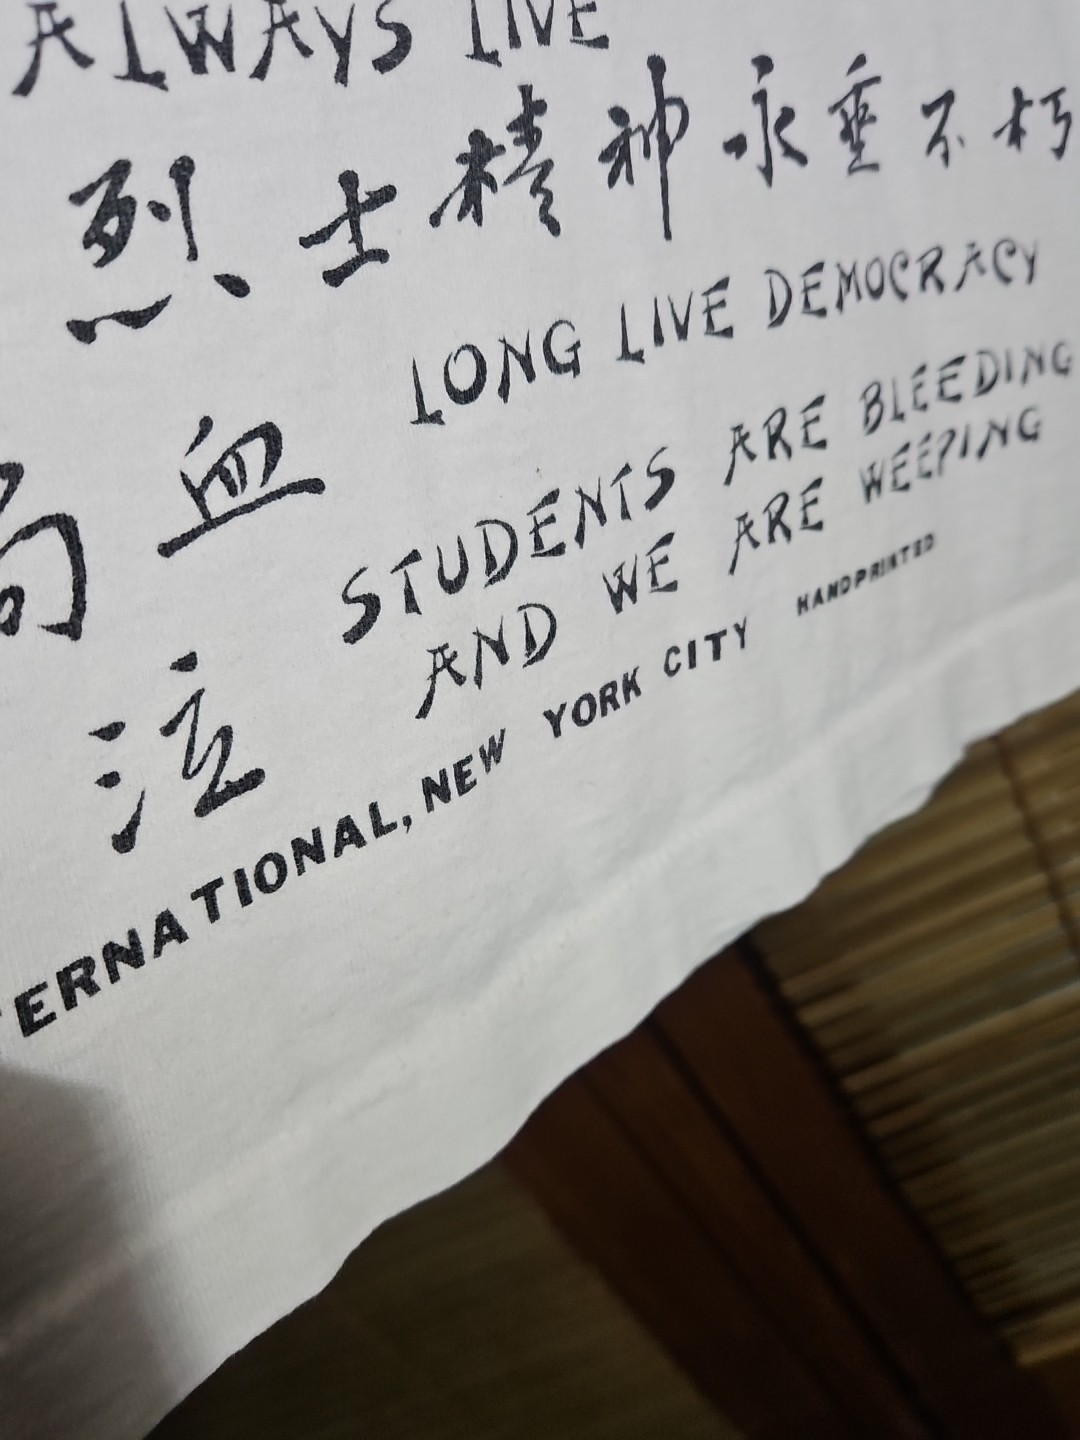 ALWAYS LIVE
烈士精神永垂不朽
LONG LIVE DEMOCRACY
血
STUDENTS ARE BLEEDING
泣
AND WE ARE WEEPING
ERNATIONAL, NEW YORK CITY HANDPRINTED